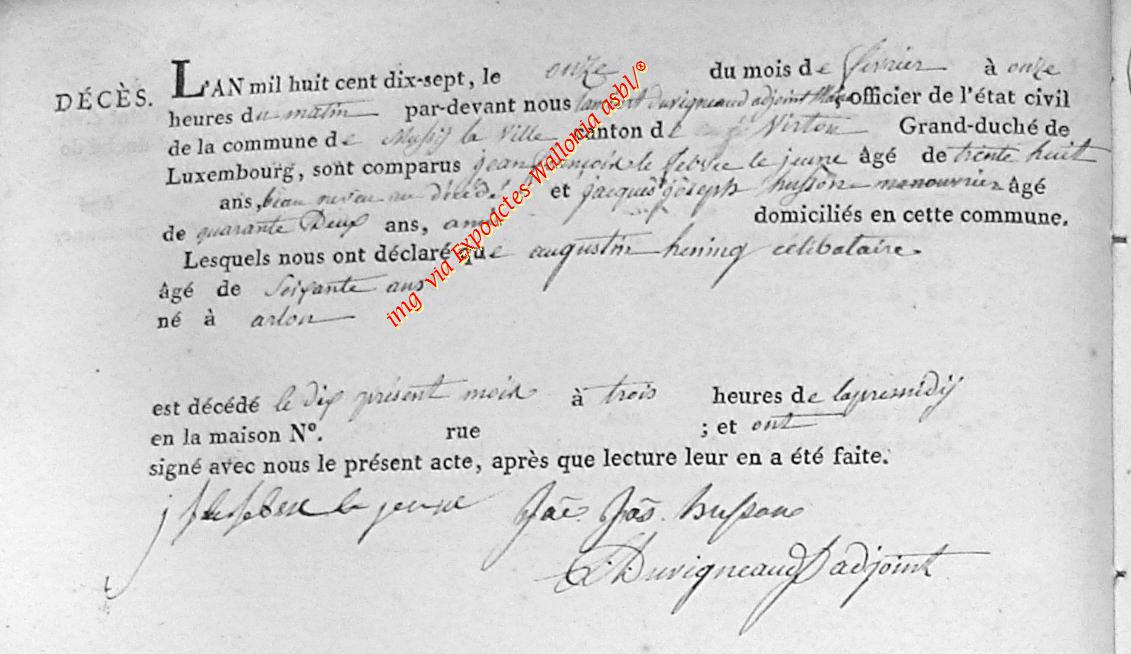 DÉCÈS.
L'AN mil huit cent dix-sept, le onze du mois de février à onze
heures du matin par-devant nous lambert duvigneaud adjoint officier de l'état civil
de la commune de Mussy la Ville canton de Virton Grand-duché de
Luxembourg, sont comparus jean françois le febvre le jeune âgé de trente huit
ans, beau neveu au décédé et jacques joseph husson manouvrier âgé
de quarante Deux ans, ami domiciliés en cette commune.
Lesquels nous ont déclaré que augustin hening célibataire.
âgé de Soixante ans
né à arlon
est décédé le dix présent mois à trois heures de lapresmidy
en la maison N°. rue ; et ont
signé avec nous le présent acte, après que lecture leur en a été faite.
j f lefebvre le jeune Jac. Jos. husson
Duvigneaud adjoint
img via Expoactes-Wallonia asbl/®